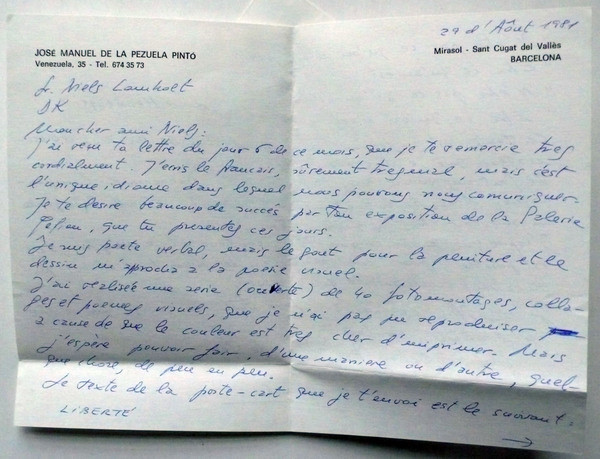 29 d'Août 1981
JOSÉ MANUEL DE LA PEZUELA PINTÓ
Venezuela, 35 - Tel. 674 35 73
Mirasol - Sant Cugat del Vallès
BARCELONA
Sr. Niels Lomholt
DK
Moucher ami Niels:
J'ai reçu ta lettre du jour 5 de ce mois, que je te remercie tres
cordialment. J'ecris le français, sûrement tres mal, mais c'est
l'unique idiome dans lequel nous pouvons nous comuniquer.
Je te desire beaucoup de succés par ton exposition de la Galerie
que tu presentes ces jours.
Je suis poete verbal, mais le gout pour la peniture et le
dessin m'aprocha a la poesie visuel.
J'ai realisée une serie (ouverte) de 40 fotomontages, colla-
ges et poemes visuels, que je n'ai pas pu reproduiser
a cause de que le couleur est tres cher d'imprimer. Mais
j'espère pouvoir fair, d'une maniere ou d'autre, quel-
que chose, de peu en peu.
Le texte de la poste-cart que je t'envoi est le suivant:
LIBERTÉ →